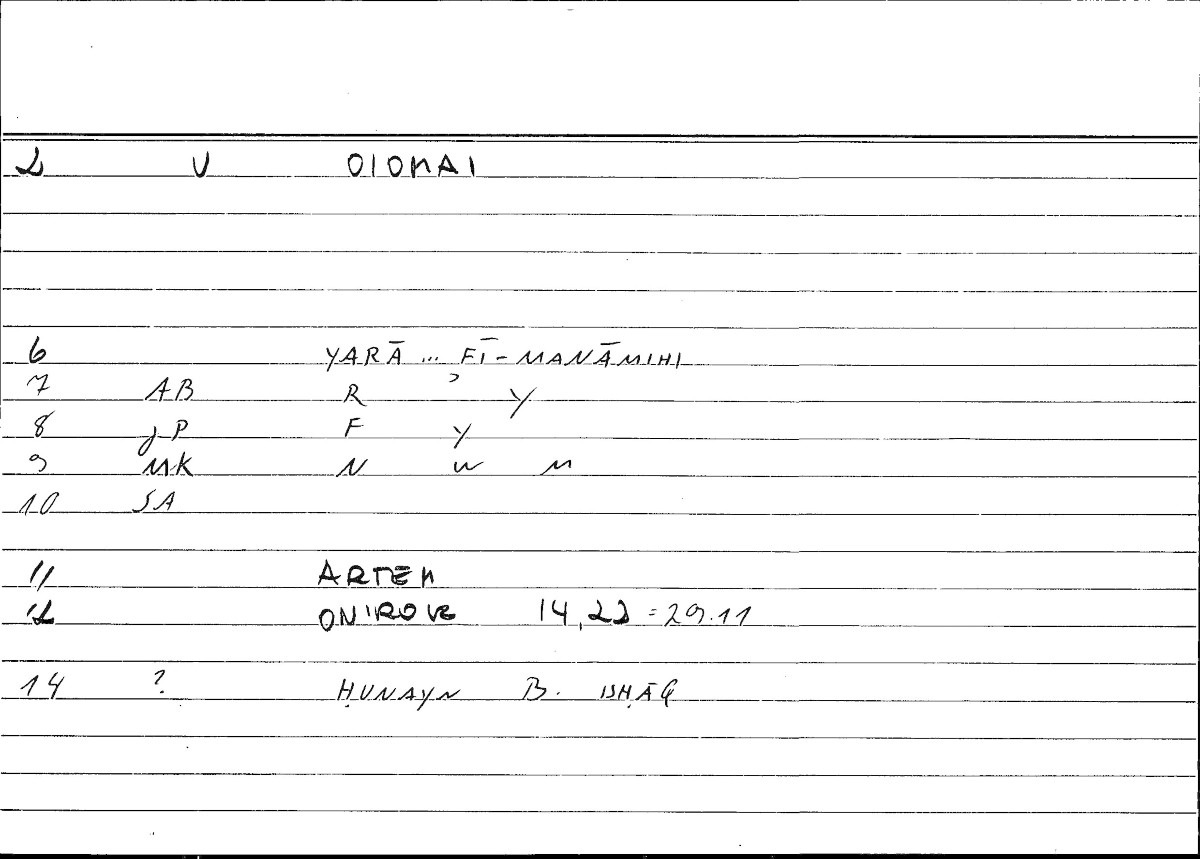 2 V OIOMAI
6 YARĀ ... FĪ-MANĀMIHI
7 AB R ʾ Y
8 JP F Y
9 MK N W M
10 SA
11 ARTEM
12 ONIROK 14,22 = 29.11
14 ? ḤUNAYN B. ISḤĀQ